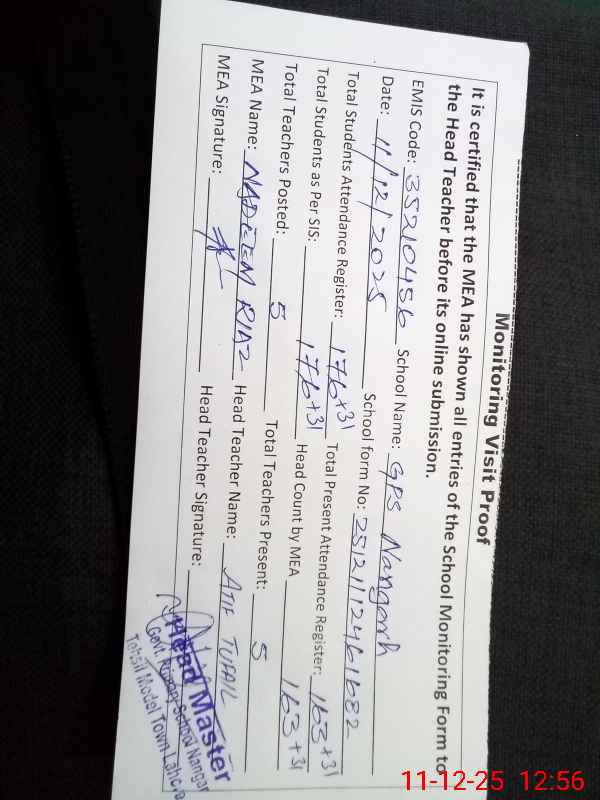 Monitoring Visit Proof
It is certified that the MEA has shown all entries of the School Monitoring Form to
the Head Teacher before its online submission.
EMIS Code: 35210456 School Name: GPS Nangarh
Date: 11/12/2025 School form No: 25121112461682
Total Students Attendance Register: 176+31 Total Present Attendance Register: 163+31
Total Students as Per SIS: 176+31 Head Count by MEA 163+31
Total Teachers Posted: 5 Total Teachers Present: 5
MEA Name: NADEEM RIAZ Head Teacher Name: ATIF TUFAIL
MEA Signature: Head Teacher Signature:
Head Master
Govt. School Nangar
Tehsil Model Town Lahore
11-12-25 12:56